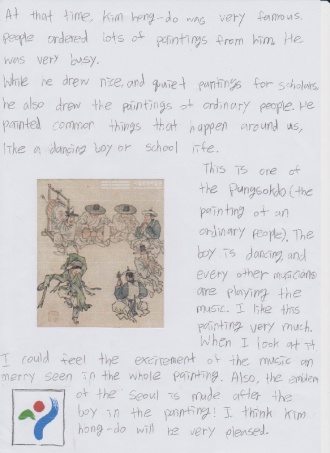 At that time, Kim hong-do was very famous.
People ordered lots of paintings from him. He
was very busy.
While he drew nice, and quiet paintings for scholars,
he also drew the paintings of ordinary people. He
painted common things that happen around us,
like a dancing boy or school life.
This is one of
the Pungsokdo (the
painting of an
ordinary people). The
boy is dancing, and
every other musicians
are playing the
music. I like this
painting very much.
When I look at it
I could feel the excitement of the music an
merry seen in the whole painting. Also, the
of the Seoul is made after the
boy in the painting! I think Kim
hong-do will be very pleased.